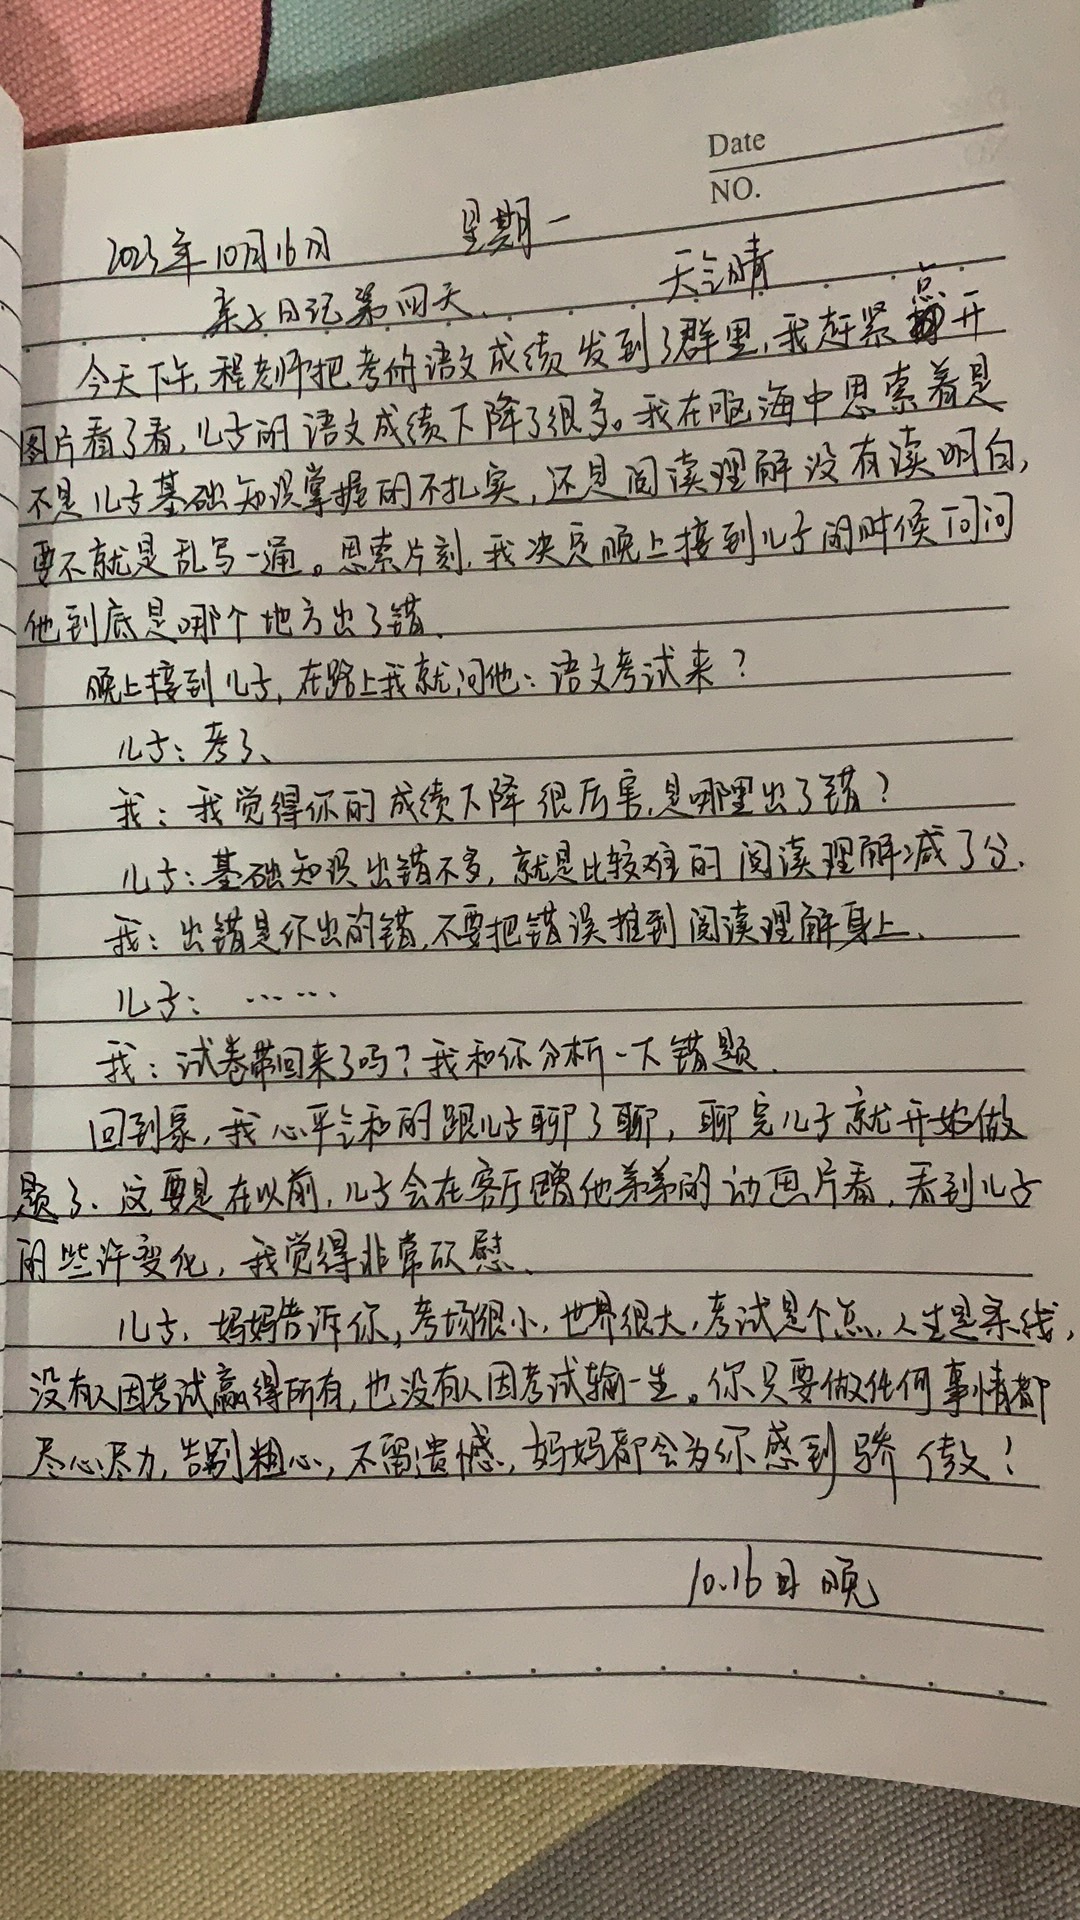 Date
NO.
2023年10月16日 星期一
亲子日记第四天. 天气晴
今天下午,程老师把考的语文成绩发到了群里,我赶紧点开
图片看了看,儿子的语文成绩下降了很多。我在脑海中思索着是
不是儿子基础知识掌握的不扎实,还是阅读理解没有读明白,
要不就是乱写一通。思索片刻,我决定晚上接到儿子的时候问问
他到底是哪个地方出了错.
晚上接到儿子,在路上我就问他:语文考试来?
儿子:考了.
我:我觉得你的成绩下降很厉害,是哪里出了错?
儿子:基础知识出错不多,就是比较难的阅读理解减了分.
我:出错是你出的错,不要把错误推到阅读理解身上.
儿子: ……
我:试卷带回来了吗?我和你分析一下错题.
回到家,我心平气和的跟儿子聊了聊,聊完儿子就开始做
题了.这要是在以前,儿子会在客厅蹭他弟弟的动画片看,看到儿子
的些许变化,我觉得非常欣慰.
儿子,妈妈告诉你,考场很小,世界很大,考试是个点,人生是条线,
没有人因考试赢得所有,也没有人因考试输一生。你只要做任何事情都
尽心尽力,告别粗心,不留遗憾,妈妈都会为你感到骄傲!
10.16日晚